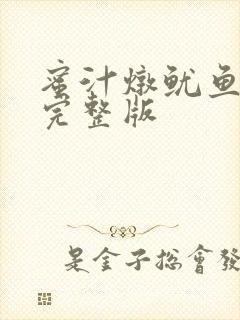 蜜汁燉鱿鱼
完整版
是金子总會發